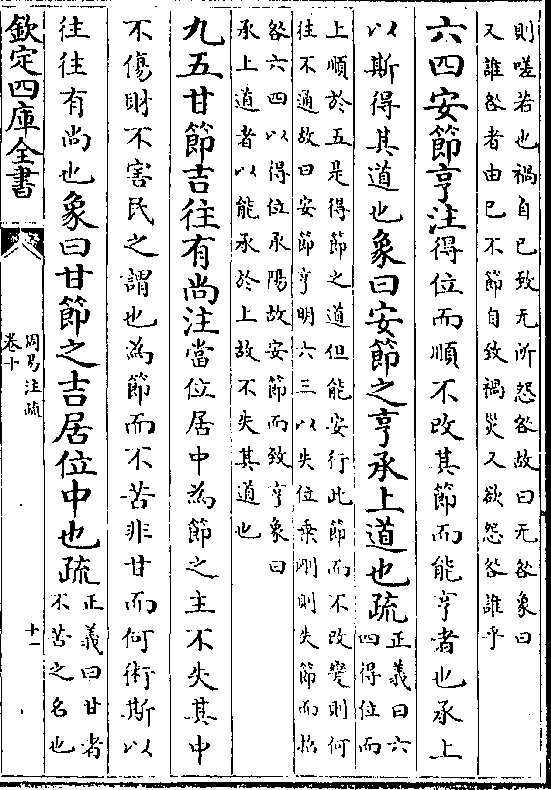 則嗟若也禍自已致无所怨咎故曰无咎象曰
又誰咎者由已不節自致禍災又欲怨咎誰乎
六四安節亨注得位而順不改其節而能亨者也承上
以斯得其道也象曰安節之亨承上道也疏
正義曰六
四得位而
上順於五是得節之道但能安行此節而不改變則何
往不通故曰安節亨明六三以失位乗剛則失節而招
咎六四以得位承陽故安節而致亨象曰
承上道者以能承於上故不失其道也
九五甘節吉往有尚注當位居中為節之主不失其中
不傷財不害民之謂也為節而不苦非甘而何術斯以
往往有尚也象曰甘節之吉居位中也疏
正義曰甘者
不苦之名也
欽定四庫全書
周易注疏
卷十
十一